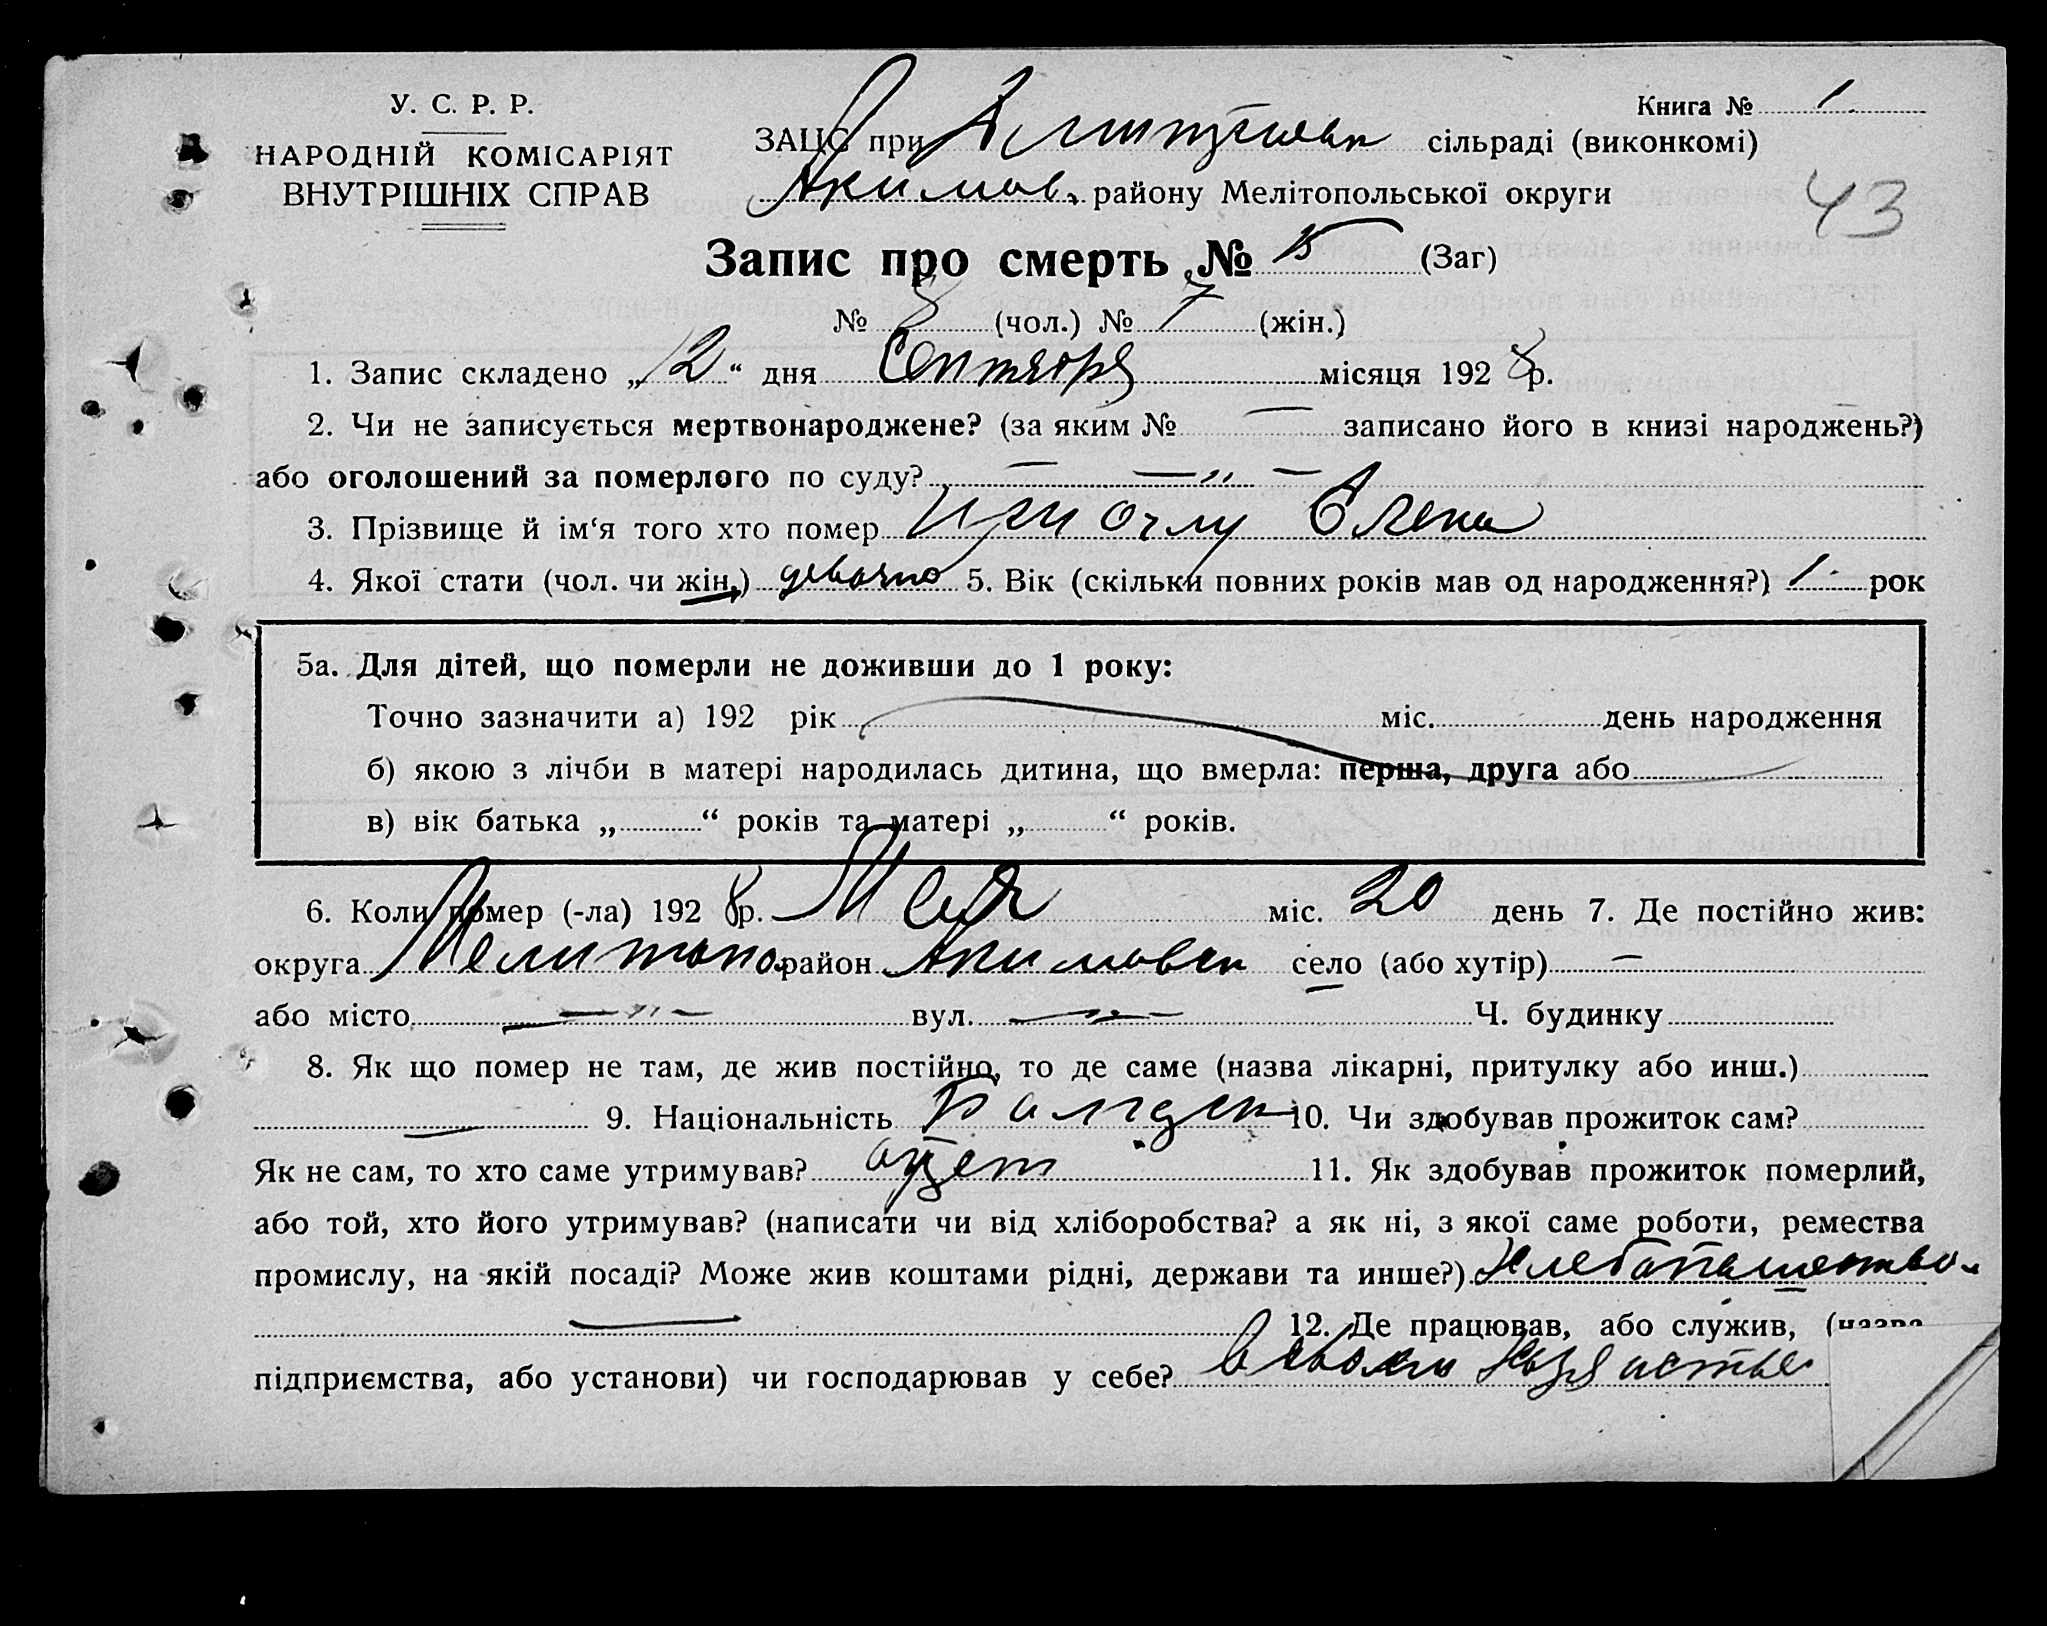 У. С. Р. Р.
НАРОДНІЙ КОМІСАРІЯТ
ВНУТРІШНІХ СПРАВ
Книга № 1
ЗАЦС при сільраді (виконкомі)
Акимов. району Мелітопольської округи
43
Запис про смерть № 15 (Заг)
№ 8 (чол.) № 7 (жін.)
1. Запис складено „ 2 “ дня Сентября місяця 192 8 р.
2. Чи не записується мертвонароджене? (за яким № — записано його в книзі народжень?)
або оголошений за померлого по суду? — — „ —
3. Прізвище й ім‘я того хто помер Елена
4. Якої стати (чол. чи жін.) девочка 5. Вік (скільки повних років мав од народження?) 1 рок
5а. Для дітей, що померли не доживши до 1 року:
Точно зазначити а) 192 рік міс. день народження
б) якою з лічби в матері народилась дитина, що вмерла: перша, друга або
в) вік батька „ “ років та матері „ “ років.
6. Коли помер (-ла) 192 8 р. Мая міс. 20 день 7. Де постійно жив:
округа Мелитопо. район Акимовск село (або хутір) —
або місто — „ — вул. — „ — Ч. будинку
8. Як що помер не там, де жив постійно, то де саме (назва лікарні, притулку або инш.)
— 9. Національність 10. Чи здобував прожиток сам?
Як не сам, то хто саме утримував? отец 11. Як здобував прожиток померлий,
або той, хто його утримував? (написати чи від хліборобства? а як ні, з якої саме роботи, ремества
промислу, на якій посаді? Може жив коштами рідні, держави та инше?) хлебопашество
— 12. Де працював, або служив, (назва
підприємства, або установи) чи господарював у себе? в своем хозяйстве